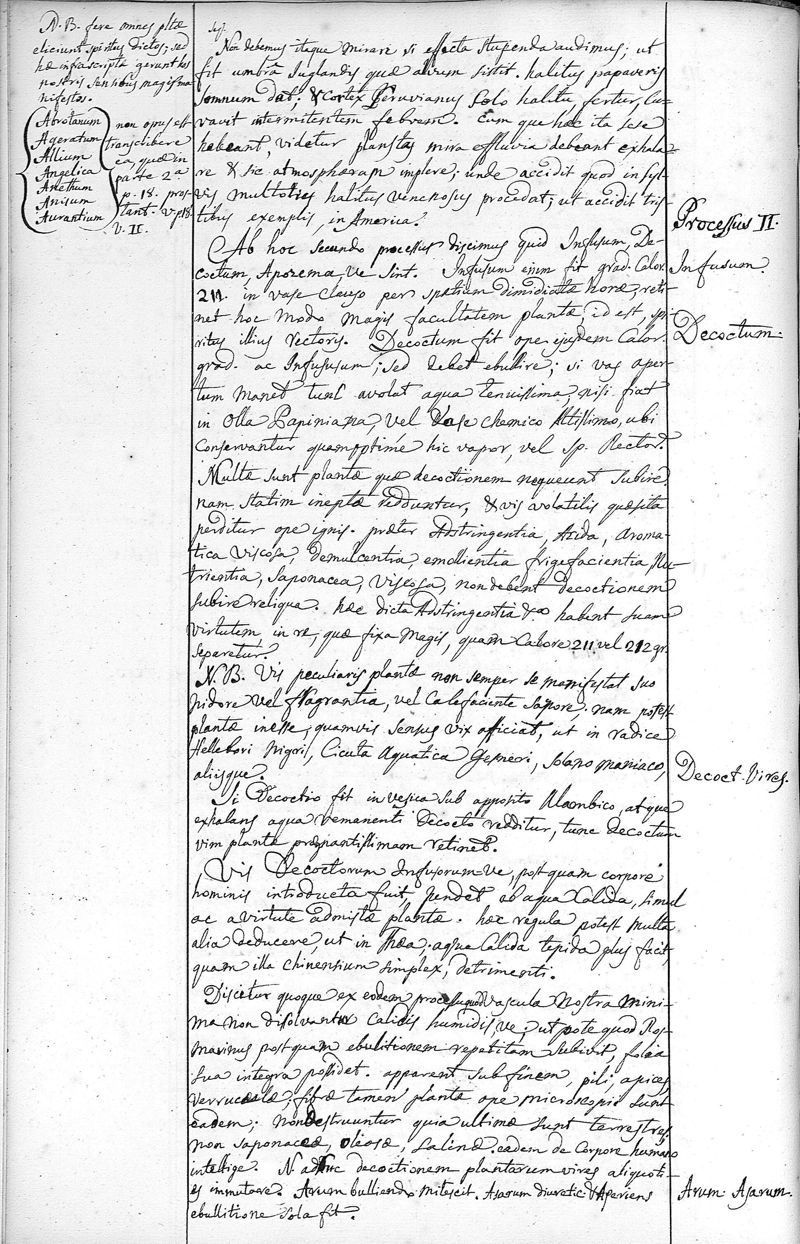 N. B. fere omnes pltæ
eliciunt spiritus dictos; sed
hæ infrascriptæ gerunt hos
nostris sensibus magis ma-
nifestos.
Abrotanum
Ageratum
Allium
Angelica
Anethum
Anisum
Aurantium
non opus est
transcribere
ea, quæ in
parte 2.a
p. 18. pros-
tant. v. p. 18.
V. II.
Non debemus itaque mirari si effecta stupenda audimus; ut
fit umbra Juglandis quæ alvum sistit. habitus papaveris
somnum dat. & Cortex Peruvianus solo halitu, fertur, cu-
ravit intermittentem febrem. Cum que hæc ita sese
habeant, videtur plantas mira effluvia debeant exhala-
re & sic atmosphæram implere; unde accidit quod in syl-
vis multoties halitus venenosus procedat; ut accidit tris-
tibus exemplis, in America.
Processus II.
Ab hoc secundo processus discimus quid Infusum, De-
coctum, Apozema, ve sint. Infusum enim fit grad. Calor.
Infusum.
211. in vase clauso per spatium dimidiatæ horæ, reti-
net hoc modo magis facultatem plantæ, id est, spi-
ritus illius rectoris. Decoctum fit ope ejusdem Calor.
Decoctum.
grad. ac Infusum; sed debet ebullire; si vas aper-
tum manet tunc avolat aqua tenuissima, nisi fiat
in Olla Papiniana, vel Vase chemico Altissimo, ubi
conservantur quam optime hic vapor, vel Sp. Rector.
Multæ sunt plantæ quæ decoctionem nequeunt subire
nam statim ineptæ redduntur, & vis volatilis quæsita
perditur ope ignis. præter Adstringentia, Acida, Aroma-
tica Viscosa, Demulcentia, emollientia frigefacientia Nu-
trientia, Saponacea, Viscosa, non debent decoctionem
subire reliqua. hæc dicta Adstringentia &ca habent suam
virtutem, in re, quæ fixa magis, quam Calore 211 vel 212 gr.
separetur.
N. B. Vis peculiaris plantæ non semper se manifestat suo
nidore vel fragrantia, vel Calefaciente sapore; nam potest
plantæ inesse, quamvis sensus vix afficiat, ut in radice
Hellebori nigri, Cicuta Aquatica Gesneri, Solano maniaco,
aliisque.
Decoct. Vires.
Si Decoctio fit in vesica sub apposito Alambico, atque
exhalans aqua remanenti decocto redditur, tunc decoctum
vim plantæ prægnantissimam retinet.
Vis Decoctorum Infusorum-ve, postquam corpore
hominis introducta fuit, pendet ab aqua Calida, simul
ac a virtute admistæ plantæ. hæc regula potest multa
alia deducere, ut in Thea, aqua Calida tepida plus facit,
quam illa chinensium simplex, detrimenti.
Discitur quoque ex eodem processu quod vascula nostra mini-
ma non dissolvantur calidis humidis, ve; ut pote quod Ros-
marinus postquam ebulitionem repetitam subivit, folia
sua integra possidet. apparent sub finem, pili, apices,
verruculæ; fibræ tamen plantæ ope microscopio sunt
eadem; non destruuntur quia ultimæ sunt terrestres,
non saponaceæ, oleosæ, salinæ. eadem de Corpore humano
intellige. decoctionem plantarum vires aliquoti-
es immutare. Arum bulliendo mitescit. Asarum diuretic. & Aperiens
Arum. Asarum.
ebullitione sola fit.